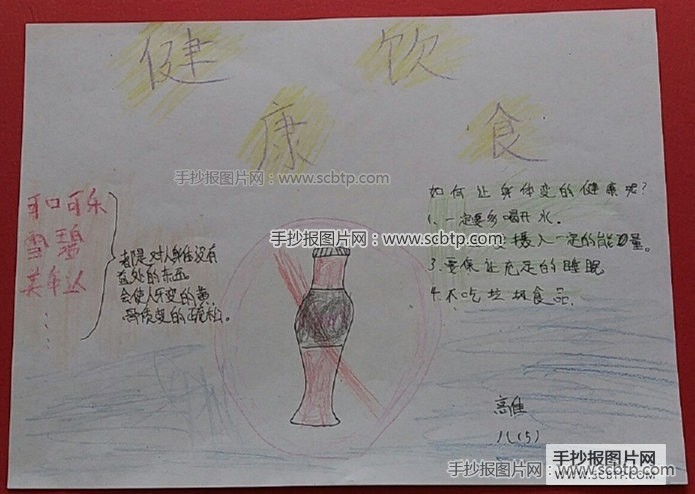 健 饮
康 食
手抄报图片网 www.scbtp.com
可口可乐
雪碧
美年达
……
都是对人身体没有
益处的东西
会使人牙变的黄,
骨质变的疏松。
如何让身体变的健康呢?
1、一定要多喝开水。
手抄报图片网 www.scbtp.com 摄入一定的能量。
3、要保证充足的睡眠
4、不吃垃圾食品。
八(5)
手抄报图片网 www.scbtp.com
手抄报图片网
WWW.SCBTP.COM